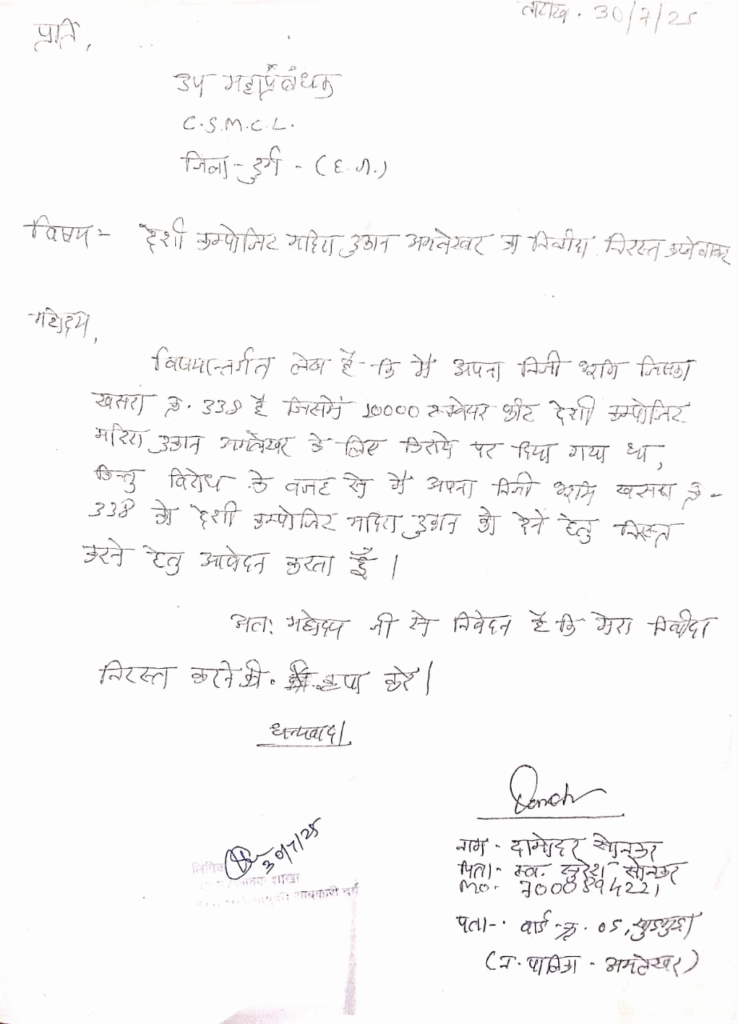 तारीख. 30/7/25
प्रति,
उप महाप्रबंधक
C.S.M.C.L.
जिला - दुर्ग - (छ.ग.)
विषय = देशी कम्पोजिट मदिरा दुकान अमलेश्वर का निवीदा निरस्त करने बाबत्
महोदय,
विषयान्तर्गत लेख है कि मैं अपना निजी भूमि जिसका
खसरा क्र. 338 है जिसमें 10000 स्क्वेयर फीट देशी कम्पोजिट
मदिरा दुकान अमलेश्वर के लिए किराये पर दिया गया था,
किन्तु विरोध के वजह से मैं अपना निजी भूमि खसरा क्र -
338 को देशी कम्पोजिट मदिरा दुकान को देने हेतु निरस्त
करने हेतु आवेदन करता हूँ।
अतः महोदय जी से निवेदन है कि मेरा निवीदा
निरस्त करने की. कृपा करें।
धन्यवाद।
30/7/25
लिपिक
शाखा
आबकारी दुर्ग
नाम - दामोदर सोनकर
पिता - स्व. सुरेश सोनकर
mo. 7000894221
पता - वार्ड क्र. 05,
(न. पालिका - अमलेश्वर)